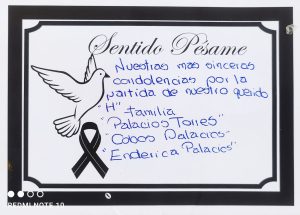 Sentido Pésame
Nuestras mas sinceras
condolencias por la
partida de nuestro querido
"H" Familia
"Palacios Torres"
"Cobos Palacios"
"Enderica Palacios"
REDMI NOTE 10